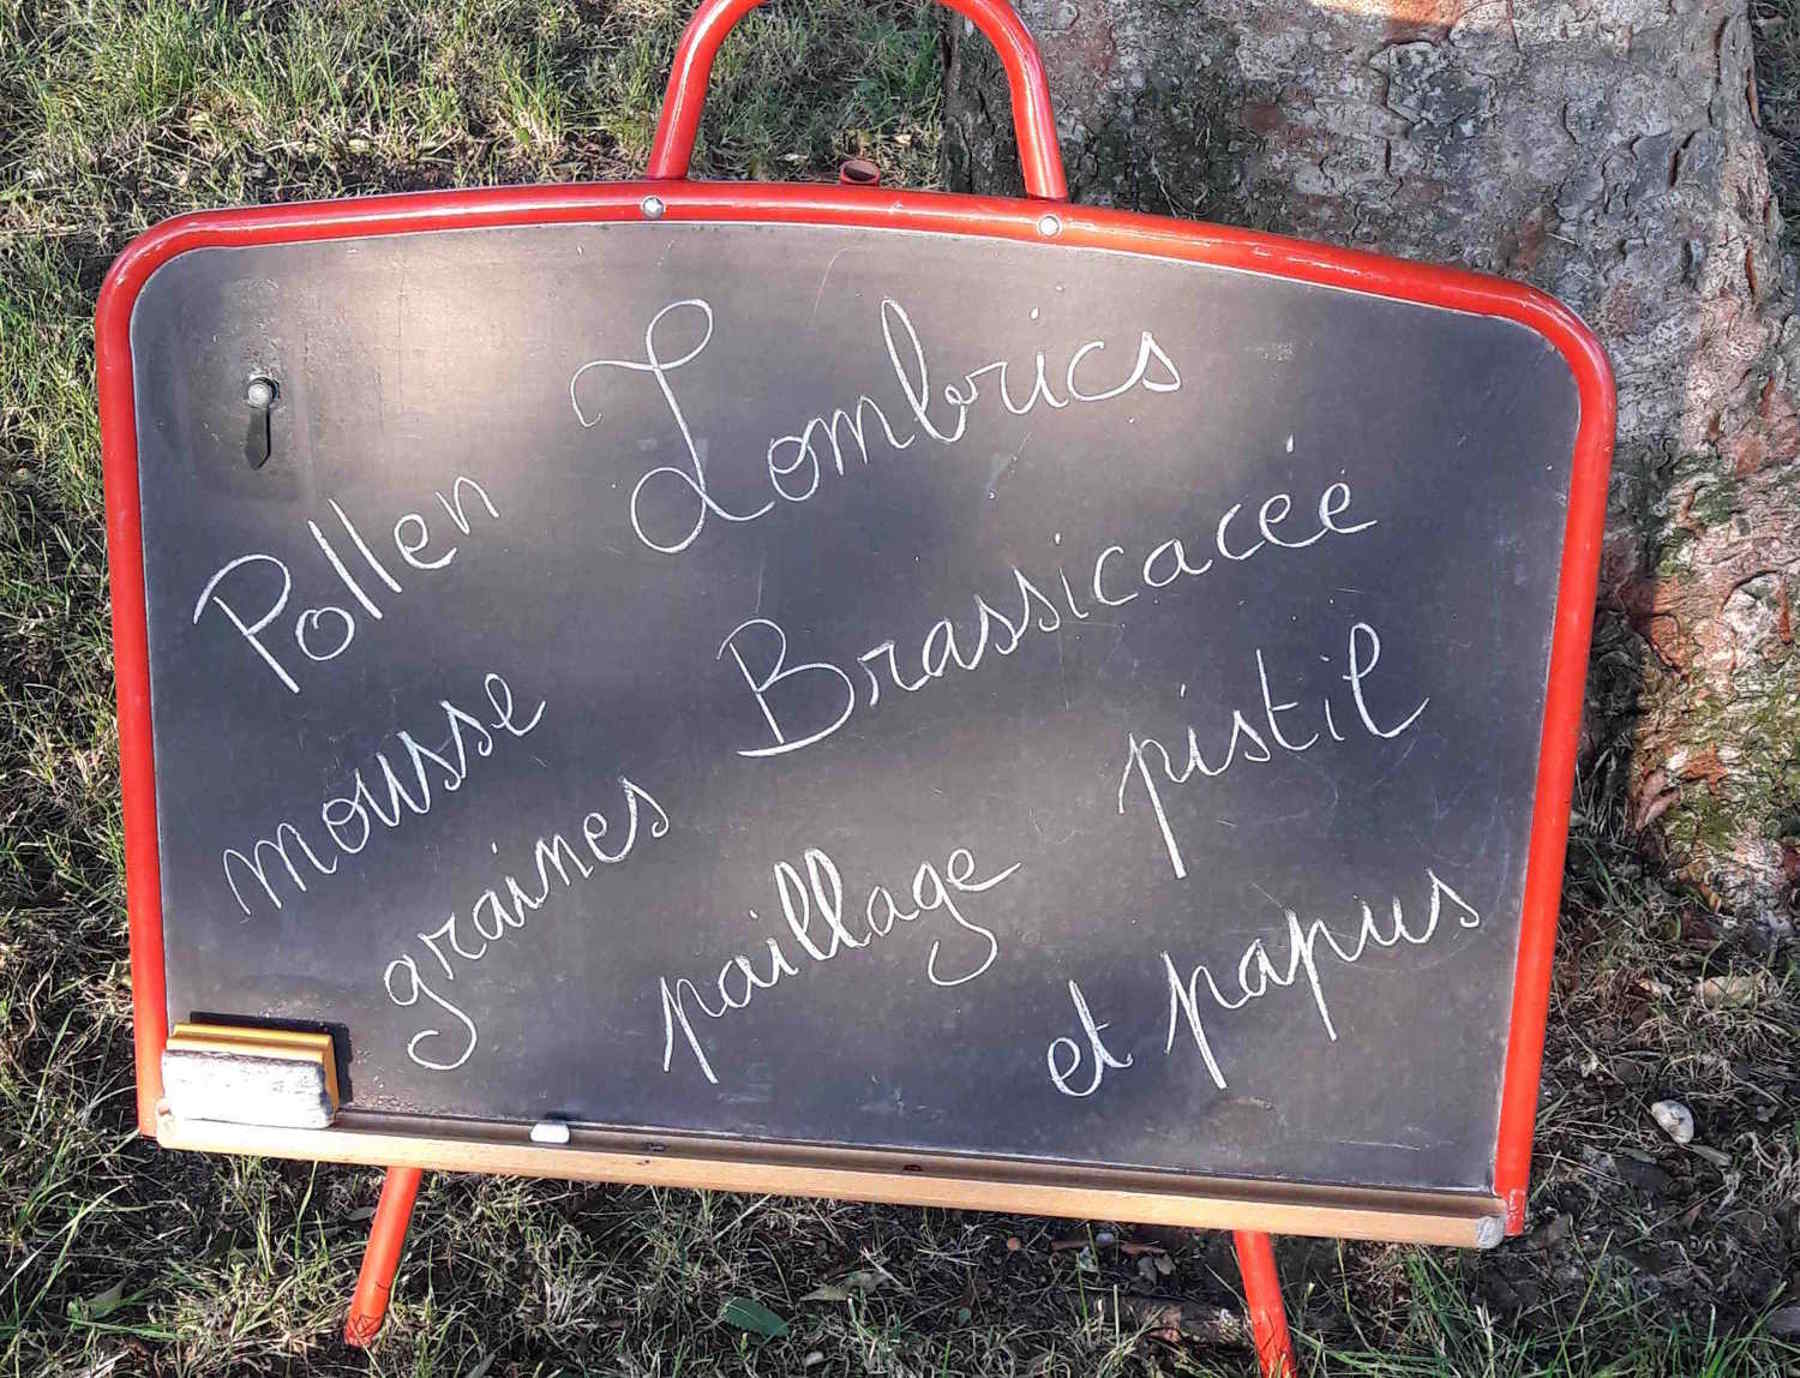 Pollen Lombrics
mousse Brassicacée
graines paillage pistil
et papus